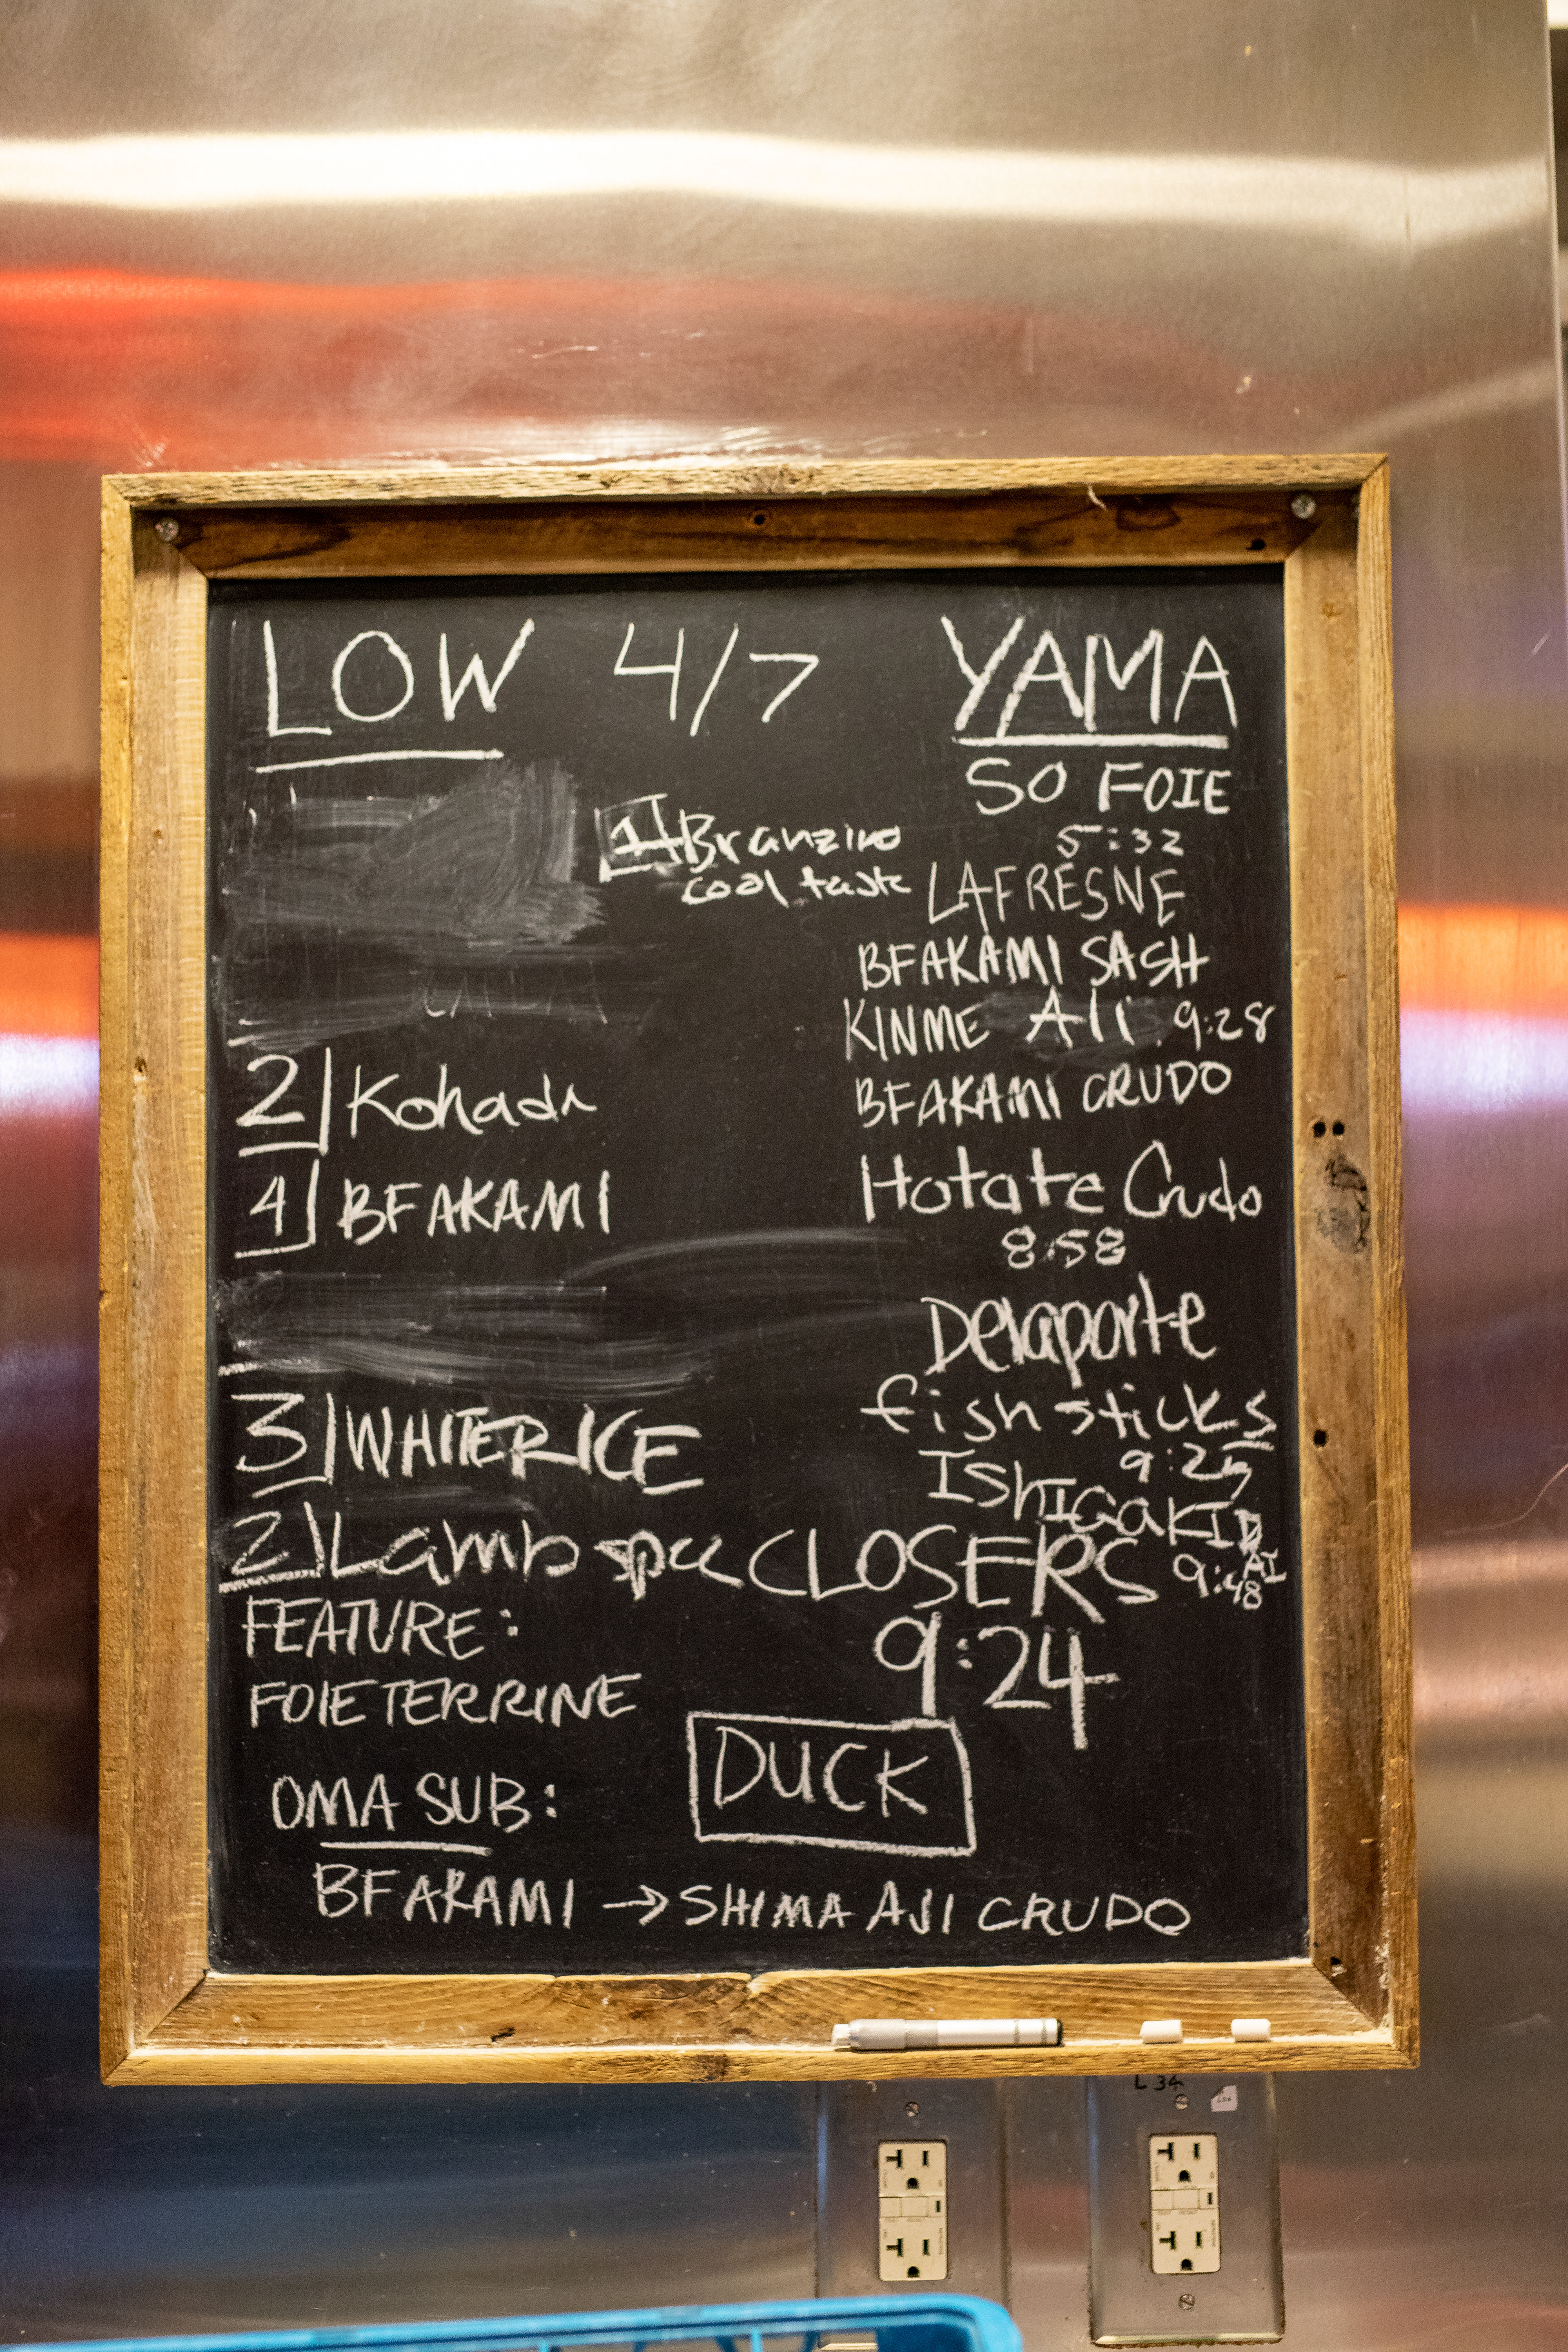 LOW 4/7 YAMA
SO FOIE
5:32
1 Branzino
cool taste
LAFRESNE
BFAKAMI SASH
KINME Ali 9:28
BFAKAMI CRUDO
Hotate Crudo
8:58
Delaporte
fish sticks
9:25
ISHIGAKIDAI
9:48
2 Kohada
4 BFAKAMI
3 WHITE RICE
2 Lamb spa
CLOSERS
9:24
FEATURE:
FOIE TERRINE
DUCK
OMA SUB:
BFAKAMI → SHIMA AJI CRUDO
L 34